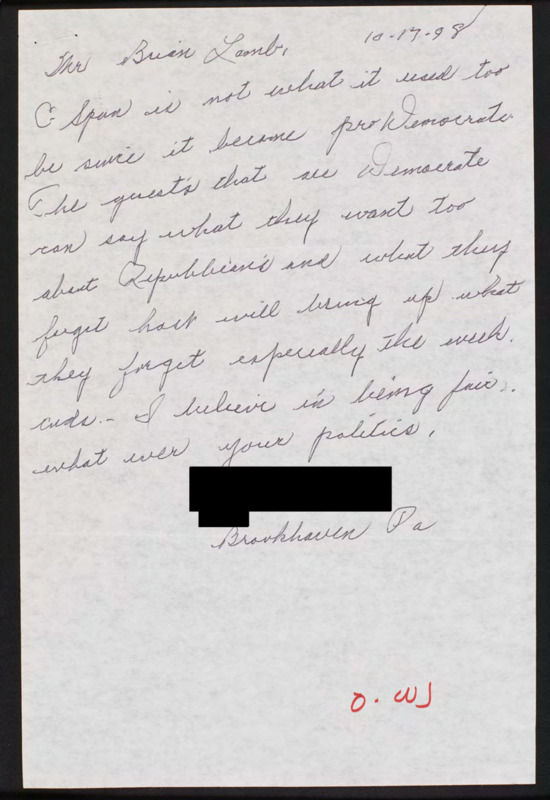 10-17-98
Mr Brian Lamb,
C-Span is not what it used too
be since it become pro Democrate
The guest's that are Democrate
can say what they want too
about Republician's and what they
forget host will bring up what
they forget especially the week.
ends.- I believe in being fair.
what ever your politics.
Brookhaven Pa
O. WJ